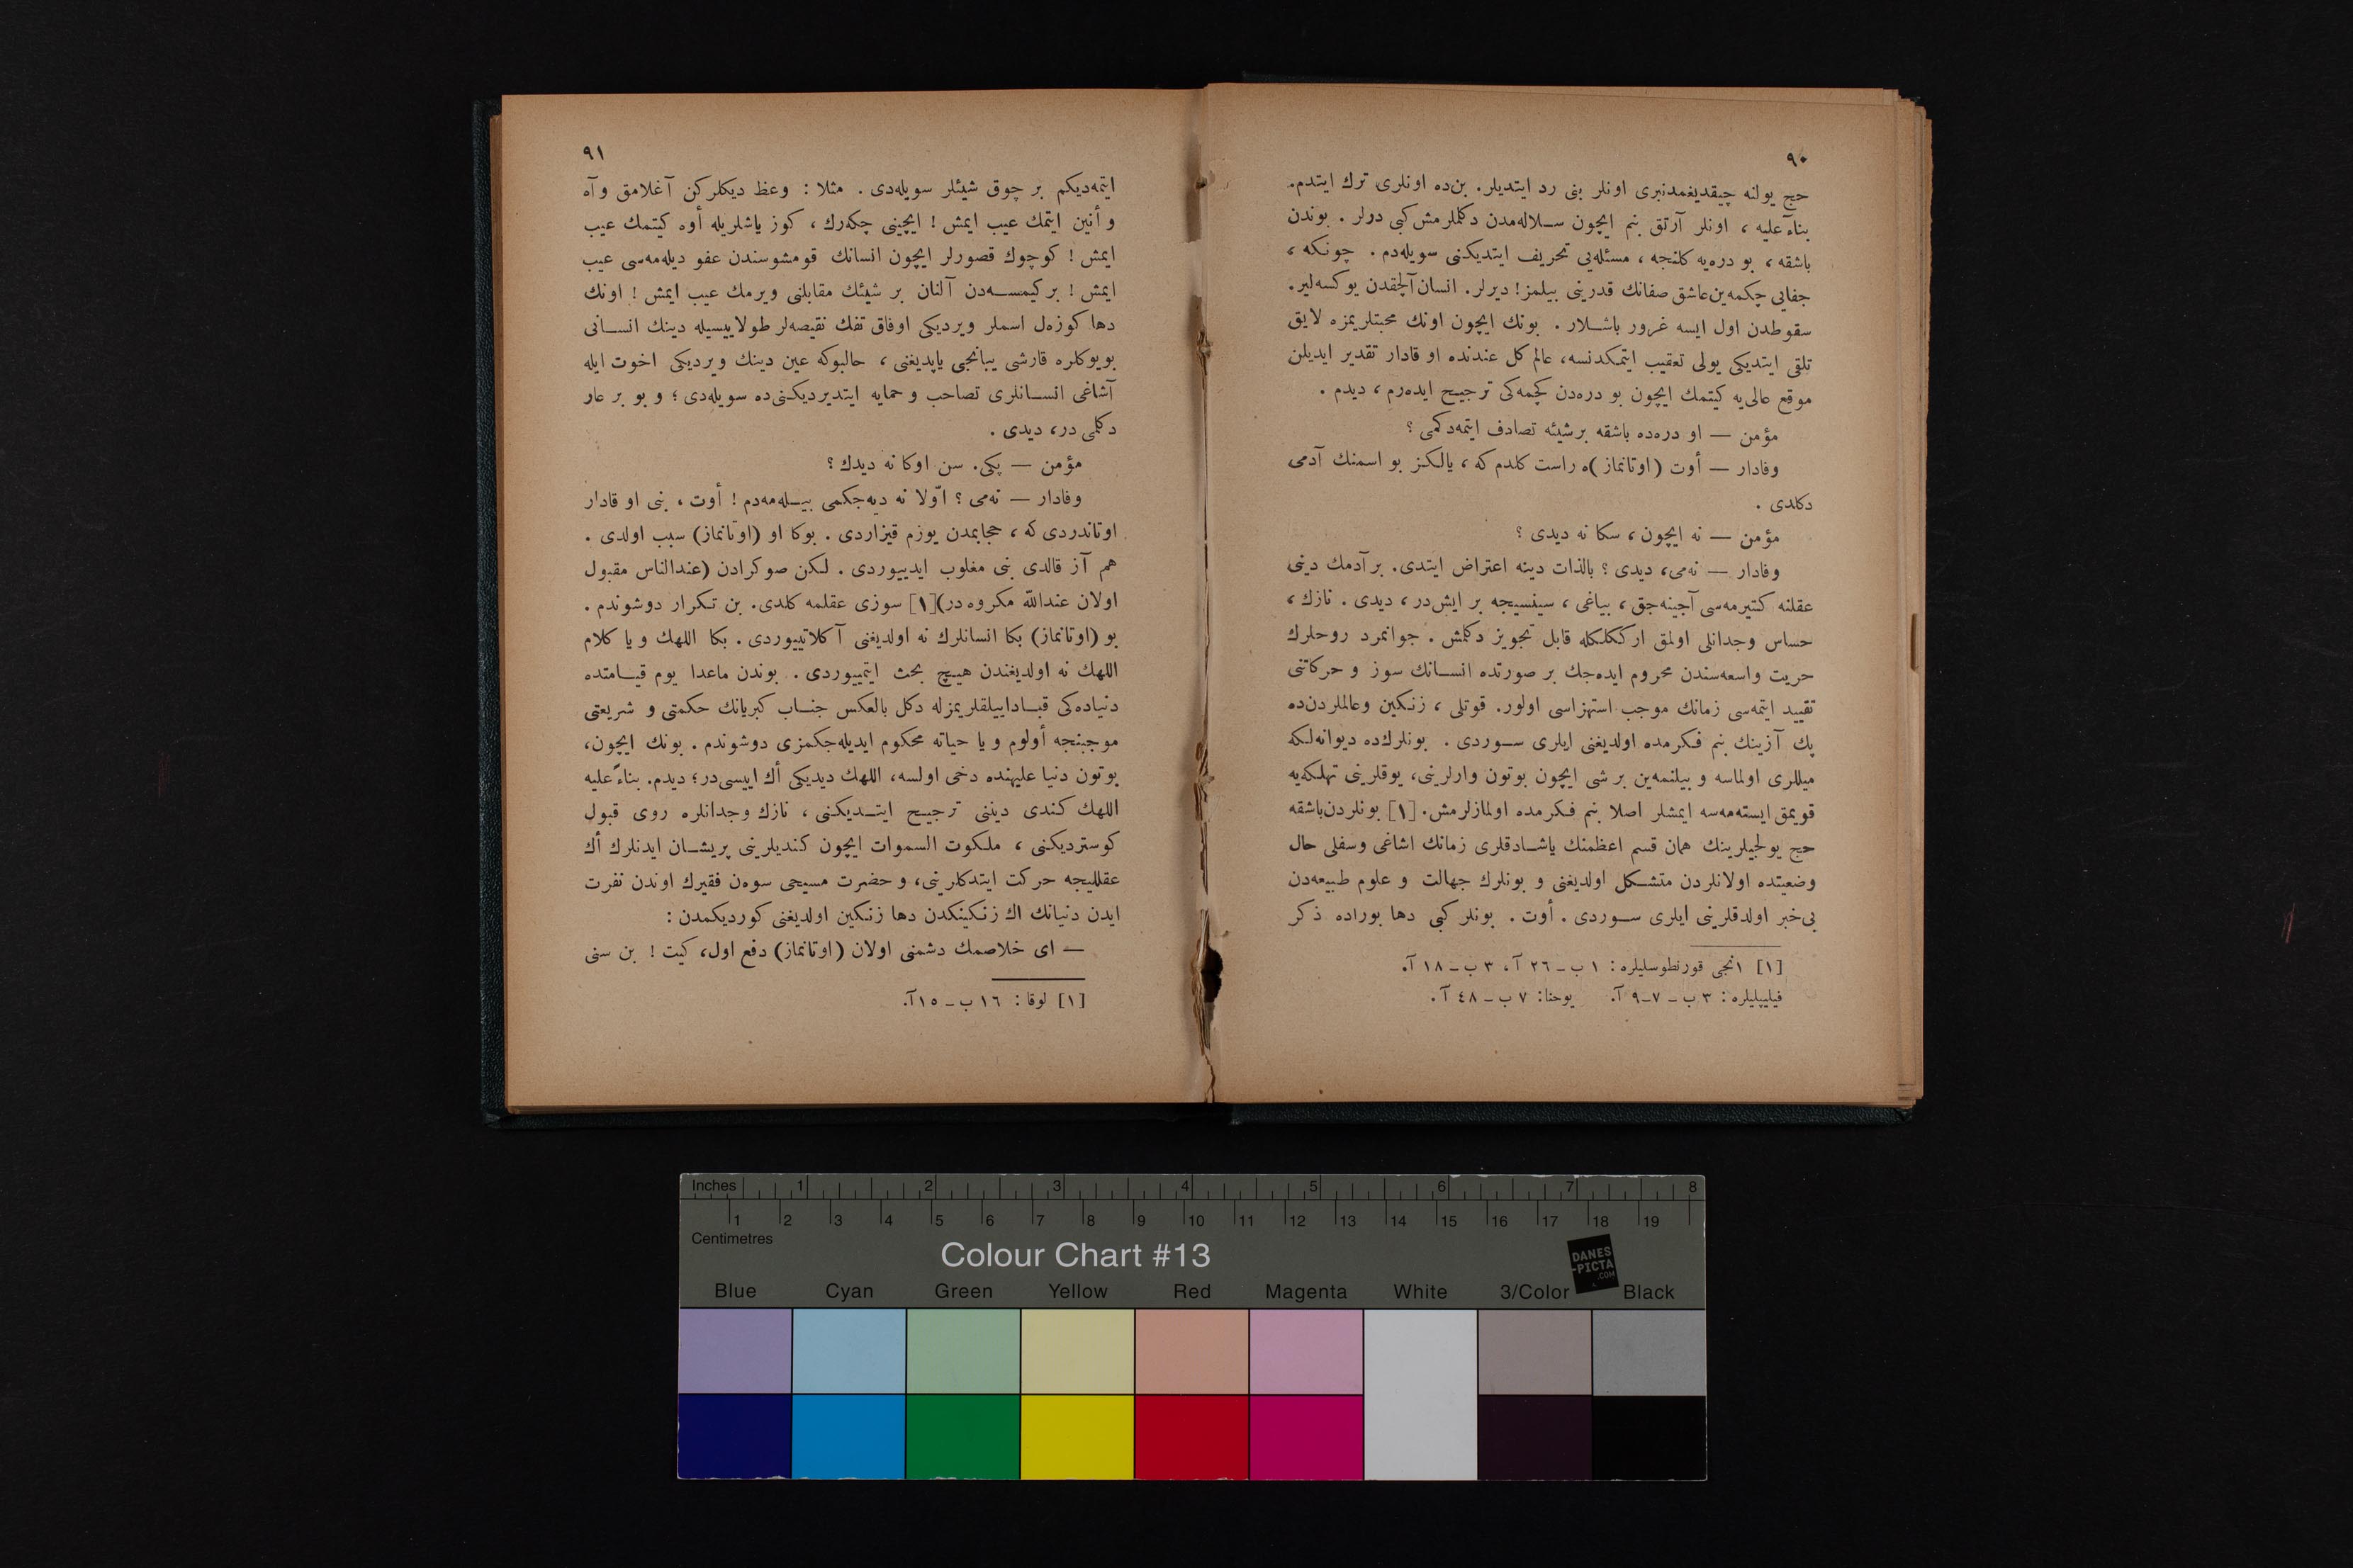 ٩٠
حج يولنه چيقديغمدنبرى اونلر بنى رد ايتديلر. بن‌ده اونلرى ترك ايتدم.
بناءً عليه ، اونلر آرتق بنم ايچون سـلاله‌مدن دكللرمش كبى دولر . بوندن
باشقه ، بو دره‌يه كلنجه ، مسئله‌يى تحريف ايتديكنى سويله‌دم . چونكه ،
جفايى چكمه‌ين عاشق صفانك قدرينى بيلمز! ديرلر. انسان آلچقدن يوكسه‌لير.
سقوطدن اول ايسه غرور باشـلار . بونك ايچون اونك محبتلريمزه لايق
تلقى ايتديكى يولى تعقيب ايتمكدنسه، عالم كل عندنده او قادار تقدير ايديلن
موقع عالى‌يه كيتمك ايچون بو دره‌دن كچمه‌كى ترجيح ايده‌رم ، ديدم .
مؤمن — او دره‌ده باشقه برشيئه تصادف ايتمه‌دكمى ؟
وفادار — أوت (اوتانماز)ه راست كلدم كه ، يالكز بو اسمنك آدمى
دكلدى .
مؤمن — نه ايچون ، سكا نه ديدى ؟
وفادار — نه‌مى، ديدى ؟ بالذات دينه اعتراض ايتدى. بر آدمك دينى
عقلنه كتيرمه‌سى آجينه‌جق ، بياغى ، سينسيجه بر ايش‌در ، ديدى . نازك ،
حساس وجدانلى اولمق اركلكله قابل تجويز دكلمش . جوانمرد روحلرك
حريت واسعه‌سندن محروم ايده‌جك بر صورتده انسـانك سوز و حركاتنى
تقييد ايتمه‌سى زمانك موجب استهزاسى اولور. قوتلى ، زنكين وعالملردن‌ده
پك آزينك بنم فكرمده اولديغنى ايلرى سـوردى . بونلرك‌ده ديوانه‌لكه
ميللرى اولماسه و بيلنمه‌ين بر شى ايچون بوتون وارلرينى، يوقلرينى تهلكه‌يه
قويمق ايسته‌مه‌سه ايمشلر اصلا بنم فكرمده اولمازلرمش. [١] بونلردن باشقه
حج يولجيلرينك همان قسم اعظمنك ياشـادقلرى زمانك اشاغى وسفلى حال
وضعيتده اولانلردن متشـكل اولديغنى و بونلرك جهالت و علوم طبيعه‌دن
بى‌خبر اولدقلرينى ايلرى سـوردى . أوت . بونلر كبى دها بوراده ذكر
[١] ١نجى قورنطوسليلره : ١ ب ـ ٢٦ آ ، ٣ ب ـ ١٨ آ.
فيليپليلره : ٣ ب ـ ٧ـ٩ آ. يوحنا: ٧ ب ـ ٤٨ آ .
٩١
ايتمه‌ديكم بر چوق شيئلر سويله‌دى . مثلا : وعظ ديكلركن آغلامق وآه
و أنين ايتمك عيب ايمش ! ايچينى چكه‌رك ، كوز ياشلريله أوه كيتمك عيب
ايمش ! كوچوك قصورلر ايچون انسانك قومشوسندن عفو ديله‌مه‌سى عيب
ايمش ! بركيمسـه‌دن آلنان بر شيئك مقابلنى ويرمك عيب ايمش ! اونك
دها كوزه‌ل اسملر ويرديكى اوفاق تفك نقيصه‌لر طولاييسيله دينك انسـانى
بويوكلره قارشى يبانجى ياپديغنى ، حالبوكه عين دينك ويرديكى اخوت ايله
آشاغى انسـانلرى تصاحب و حمايه ايتديرديكنى‌ده سويله‌دى ؛ و بو بر عار
دكلمى در، ديدى .
مؤمن — پكى. سن اوكا نه ديدك ؟
وفادار — نه‌مى ؟ اوّلا نه ديه‌جكمى بيـله‌مه‌دم ! أوت ، بنى او قادار
اوتاندردى كه ، حجابمدن يوزم قيزاردى . بوكا او (اوتانماز) سبب اولدى .
هم آز قالدى بنى مغلوب ايدييوردى . لكن صوكرادن (عندالناس مقبول
اولان عندالله مكروه در)[١] سوزى عقلمه كلدى. بن تكرار دوشوندم .
بو (اوتانماز) بكا انسانلرك نه اولديغنى آكلاتييوردى . بكا اللهك و يا كلام
اللهك نه اولديغندن هيـچ بحث ايتمييوردى . بوندن ماعدا يوم قيـامتده
دنياده‌كى قبـاداييلقلريمزله دكل بالعكس جنـاب كبريانك حكمتى و شريعتى
موجبنجه أولوم و يا حياته محكوم ايديله‌جكمزى دوشوندم . بونك ايچون،
بوتون دنيا عليهنده دخى اولسه، اللهك ديديكى أك اييسى‌در؛ ديدم. بناءً عليه
اللهك كندى ديننى ترجيـح ايتـديكنى ، نازك وجدانلره روى قبول
كوسترديكنى ، ملكوت السموات ايچون كنديلرينى پريشـان ايدنلرك أك
عقلليجه حركت ايتدكلرينى، و حضرت مسيحى سوه‌ن فقيرك اوندن نفرت
ايدن دنيانك اك زنكينكدن دها زنكين اولديغنى كورديكمدن :
— اى خلاصمك دشمنى اولان (اوتانماز) دفع اول، كيت ! بن سنى
[١] لوقا : ١٦ ب ـ ١٥ آ.
Inches 1 2 3 4 5 6 7 8
1 2 3 4 5 6 7 8 9 10 11 12 13 14 15 16 17 18 19
Centimetres
Colour Chart #13
DANES
-PICTA
.COM
Blue Cyan Green Yellow Red Magenta White 3/Color Black